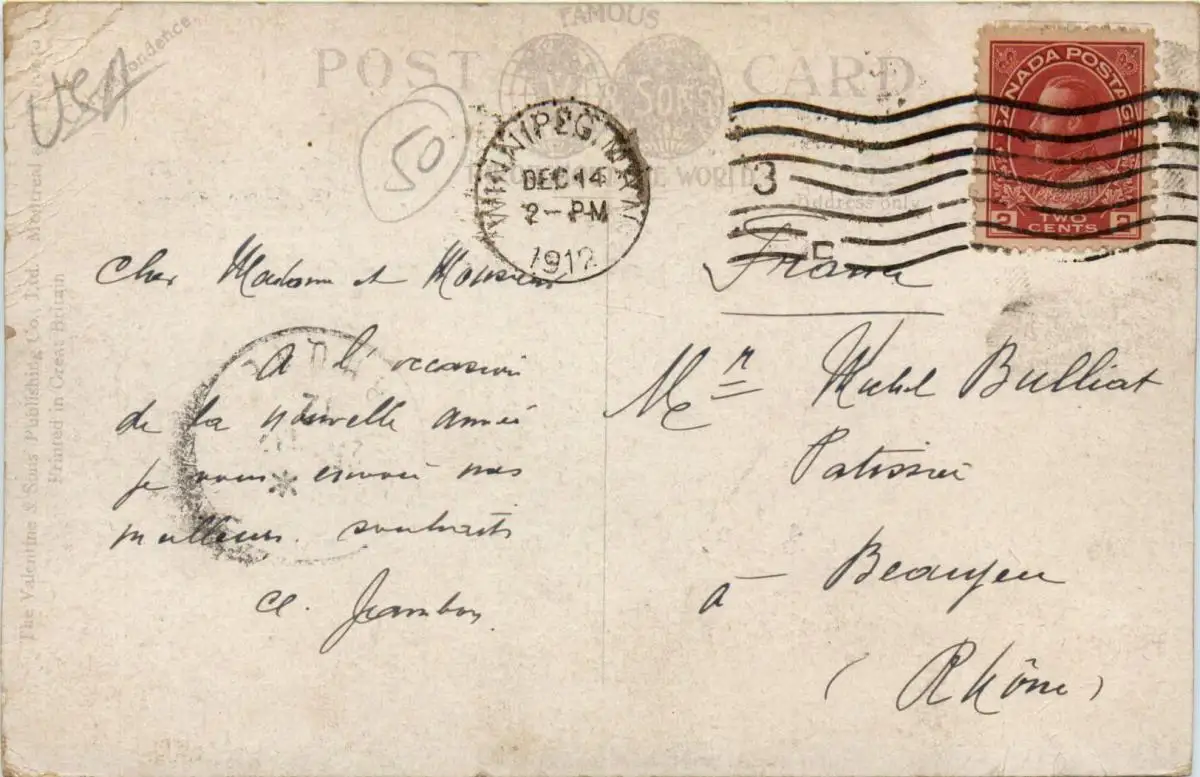 FAMOUS
POST CARD
& SONS
WORLD
Address only
USA
50
WINNIPEG, MAN.
DEC 14
2-PM
1912
3
CANADA POSTAGE
2 TWO CENTS 2
The Valentine & Sons Publishing Co., Ltd. Montreal
Printed in Great Britain
Cher Madame et Monsieur
A l'occasion
de la nouvelle année
je vous envoie mes
meilleurs souhaits
France
Mr Michel Bulliat
Patissier
à Beaujeu
(Rhône)